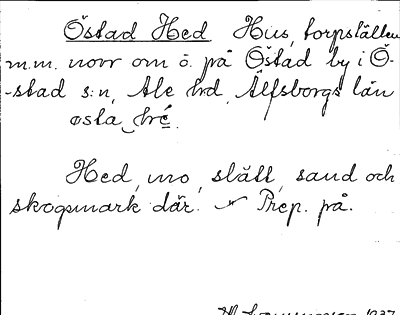 Östad Hed Hus, torpställen
m.m. norr om ö. på Östad by i Ö-
-stad s:n, Ale hrd, Älfsborgs län
østa hé.
Hed, mo, slätt, sand och
skogsmark där. Prep. på.
1937